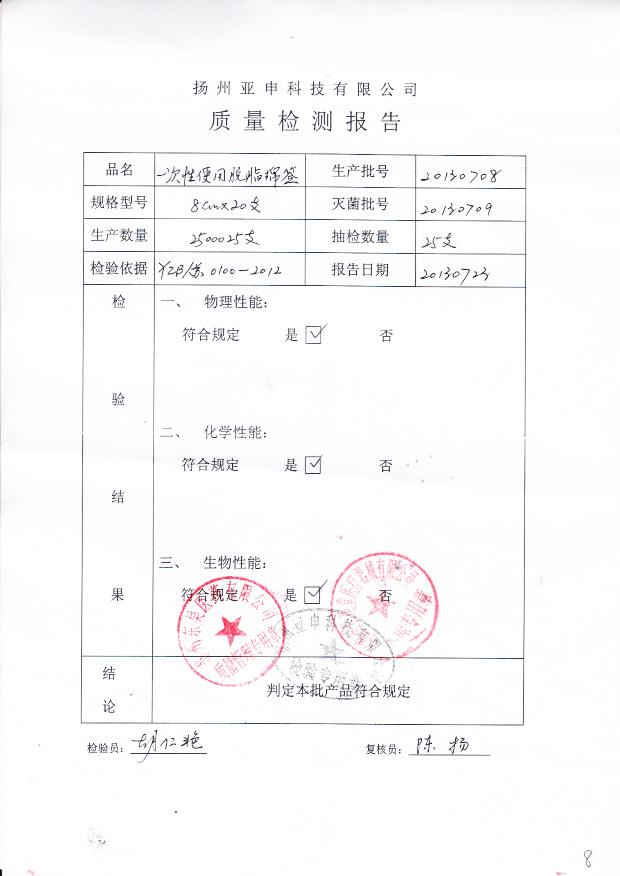 扬州亚申科技有限公司
质量检测报告
品名 一次性使用脱脂棉签 生产批号 20130708
规格型号 8cm×20支 灭菌批号 20130709
生产数量 2500025支 抽检数量 25支
检验依据 YZB/苏0100-2012 报告日期 20130723
检验结果
一、 物理性能:
符合规定 是 ☑ 否
二、 化学性能:
符合规定 是 ☑ 否
三、 生物性能:
符合规定 是 ☑ 否
结论 判定本批产品符合规定
检验员: 胡仁艳 复核员: 陈扬
8